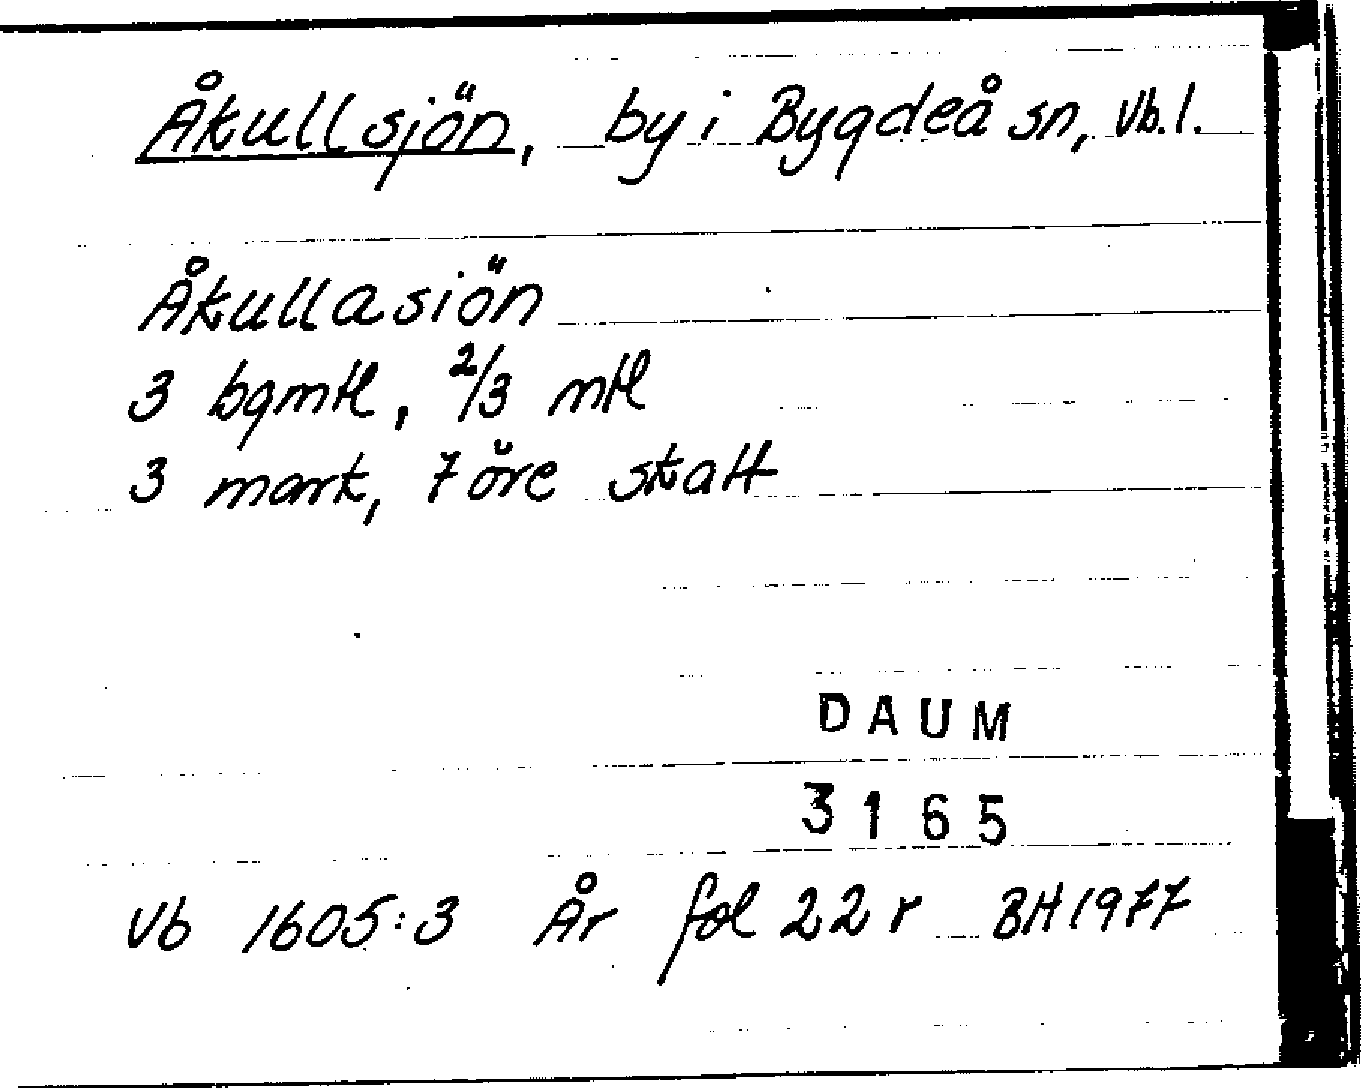 Åkullsjön, by i Bygdeå sn, Vb.l.
Åkullasiön
3 bgmtl, 2/3 mtl
3 mark, 7 öre skatt
DAUM
3165
Vb 1605:3 År fol 22 r BH 1977